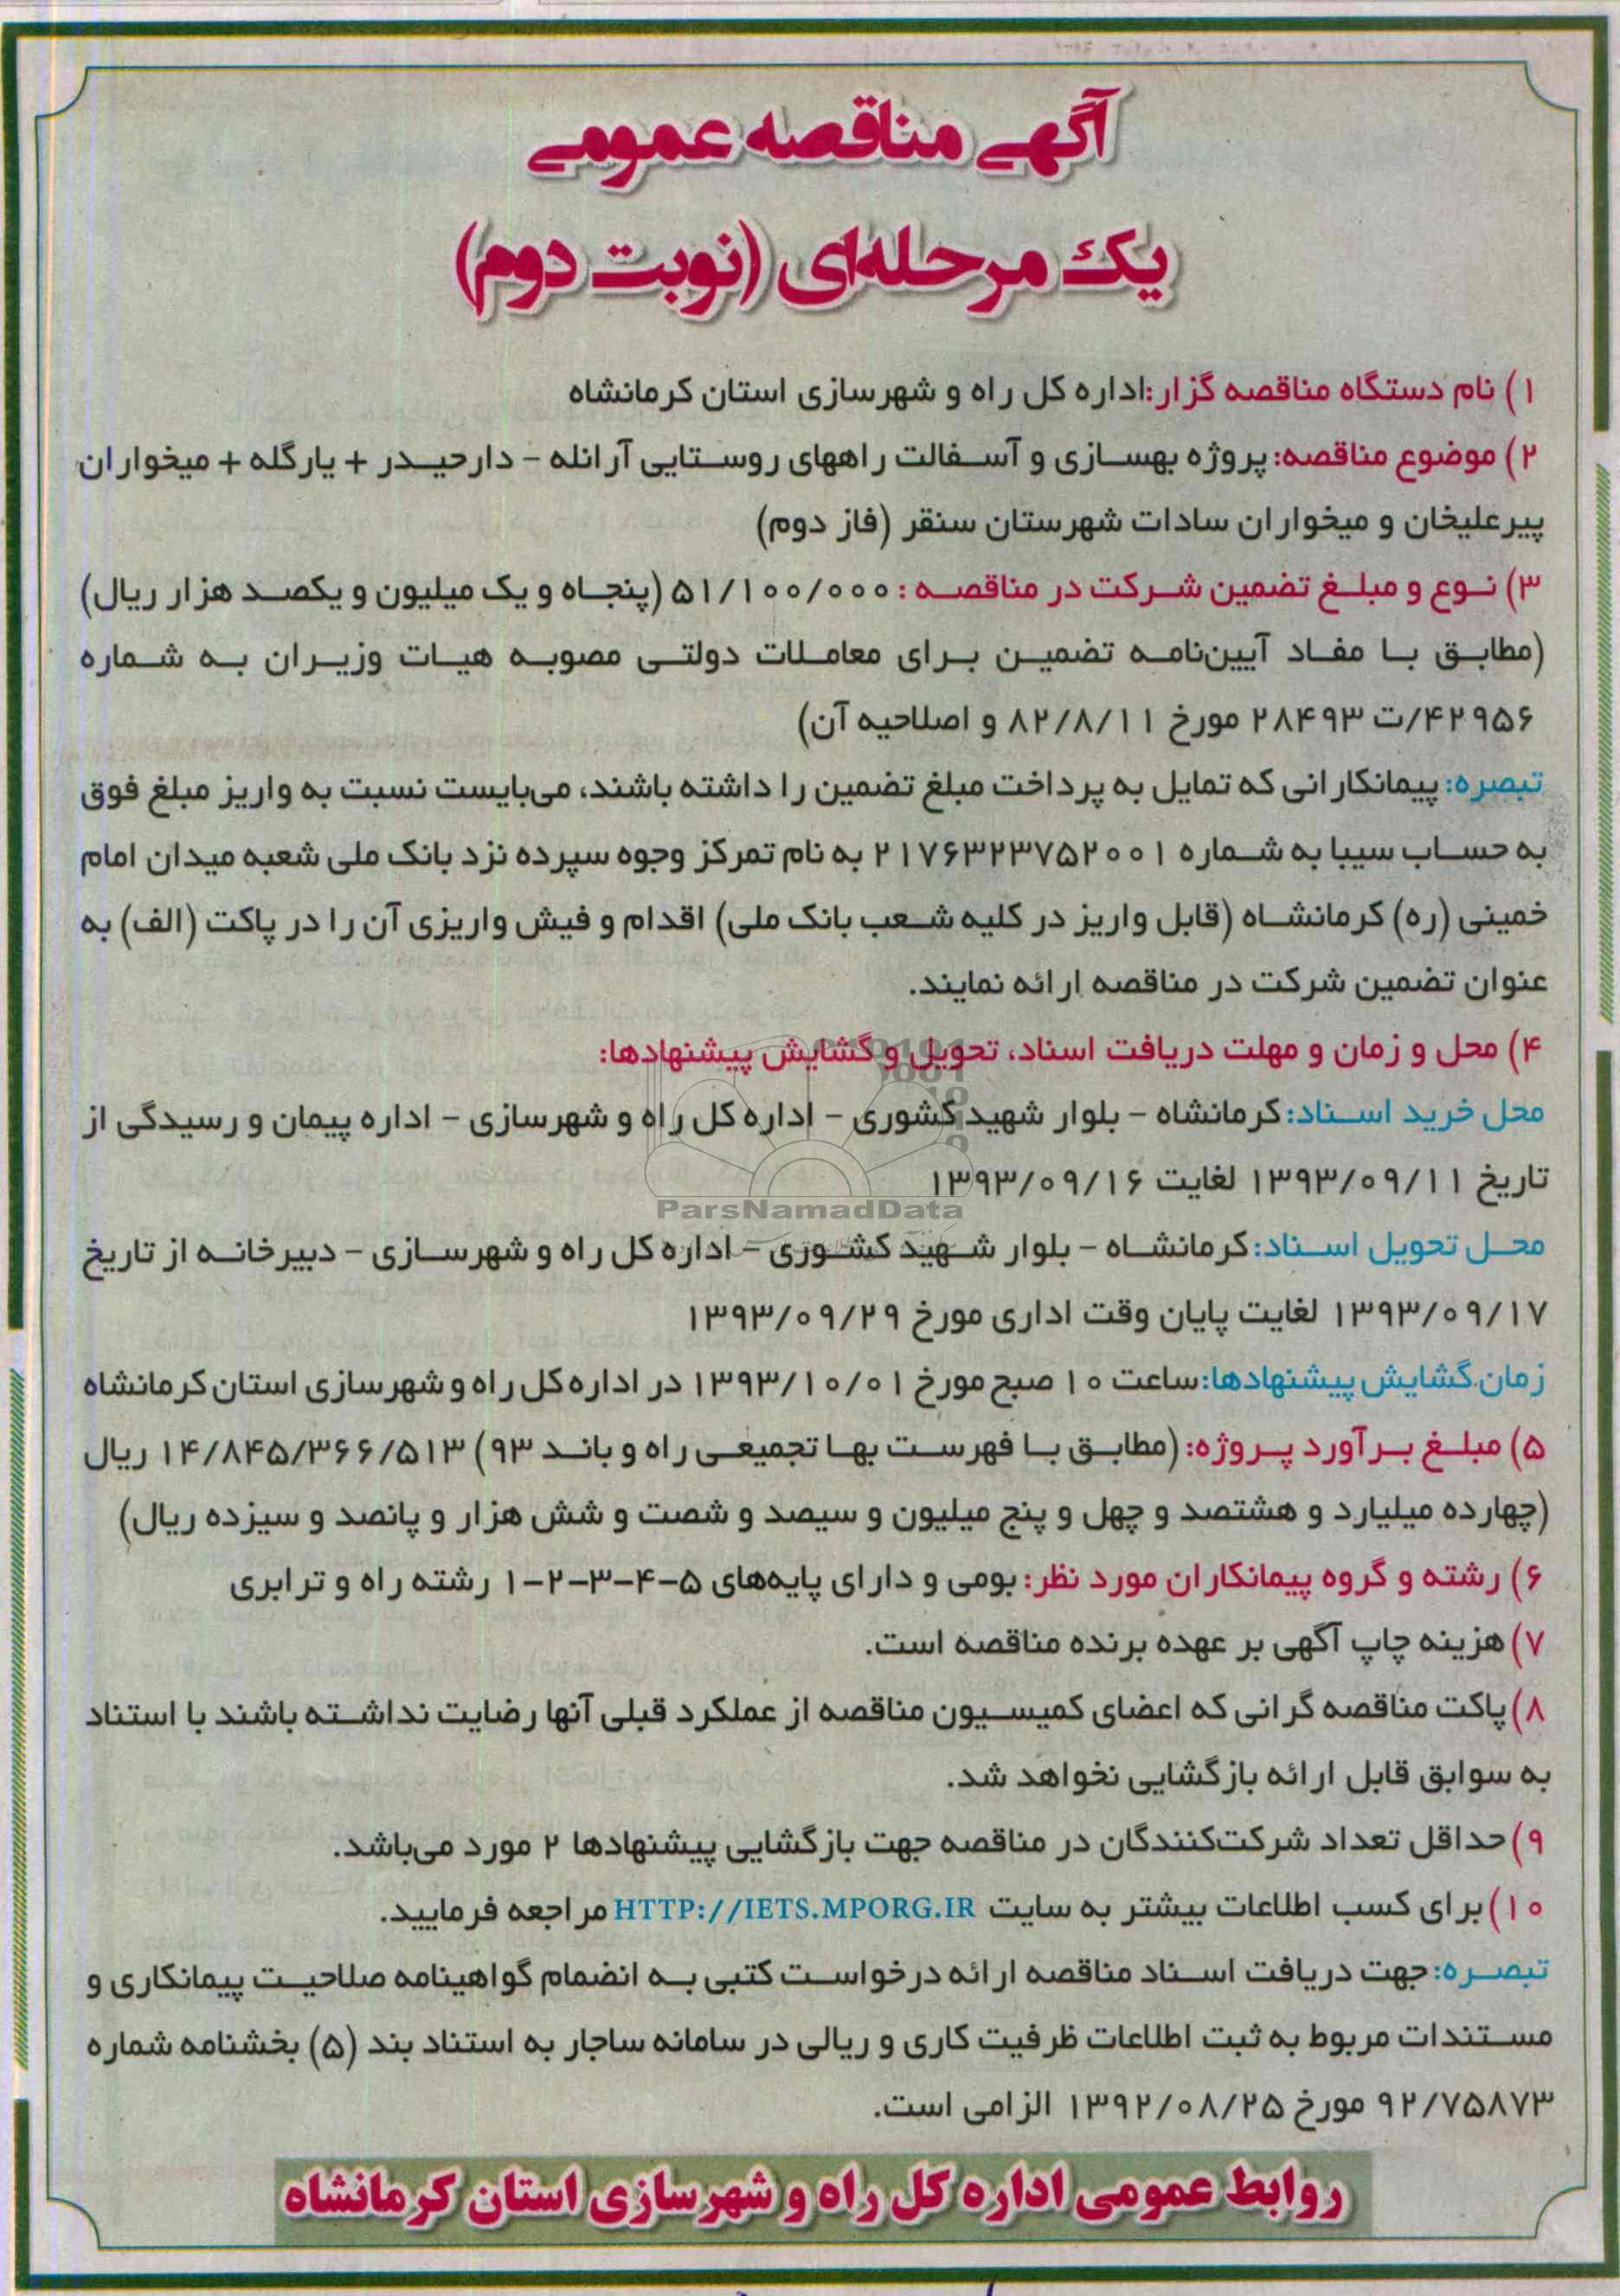 آگهی مناقصه عمومی
یک مرحله‌ای (نوبت دوم)
۱) نام دستگاه مناقصه گزار:اداره کل راه و شهرسازی استان کرمانشاه
۲) موضوع مناقصه: پروژه بهسازی و آسفالت راههای روستایی آرانله – دارحیدر + یارگله + میخواران
پیرعلیخان و میخواران سادات شهرستان سنقر (فاز دوم)
۳) نوع و مبلغ تضمین شرکت در مناقصه : ۵۱/۱۰۰/۰۰۰ (پنجاه و یک میلیون و یکصد هزار ریال)
(مطابق با مفاد آیین‌نامه تضمین برای معاملات دولتی مصوبه هیات وزیران به شماره
۴۲۹۵۶/ت ۲۸۴۹۳ مورخ ۸۲/۸/۱۱ و اصلاحیه آن)
تبصره: پیمانکارانی که تمایل به پرداخت مبلغ تضمین را داشته باشند، می‌بایست نسبت به واریز مبلغ فوق
به حساب سیبا به شماره ۲۱۷۶۳۲۳۷۵۲۰۰۱ به نام تمرکز وجوه سپرده نزد بانک ملی شعبه میدان امام
خمینی (ره) کرمانشاه (قابل واریز در کلیه شعب بانک ملی) اقدام و فیش واریزی آن را در پاکت (الف) به
عنوان تضمین شرکت در مناقصه ارائه نمایند.
۴) محل و زمان و مهلت دریافت اسناد، تحویل و گشایش پیشنهادها:
محل خرید اسناد: کرمانشاه – بلوار شهید کشوری – اداره کل راه و شهرسازی – اداره پیمان و رسیدگی از
تاریخ ۱۳۹۳/۰۹/۱۱ لغایت ۱۳۹۳/۰۹/۱۶
ParsNamadData
محل تحویل اسناد: کرمانشاه – بلوار شهید کشوری – اداره کل راه و شهرسازی – دبیرخانه از تاریخ
۱۳۹۳/۰۹/۱۷ لغایت پایان وقت اداری مورخ ۱۳۹۳/۰۹/۲۹
زمان گشایش پیشنهادها: ساعت ۱۰ صبح مورخ ۱۳۹۳/۱۰/۰۱ در اداره کل راه و شهرسازی استان کرمانشاه
۵) مبلغ برآورد پروژه: (مطابق با فهرست بها تجمیعی راه و باند ۹۳) ۱۴/۸۴۵/۳۶۶/۵۱۳ ریال
(چهارده میلیارد و هشتصد و چهل و پنج میلیون و سیصد و شصت و شش هزار و پانصد و سیزده ریال)
۶) رشته و گروه پیمانکاران مورد نظر: بومی و دارای پایه‌های ۵-۴-۳-۲-۱ رشته راه و ترابری
۷) هزینه چاپ آگهی بر عهده برنده مناقصه است.
۸) پاکت مناقصه گرانی که اعضای کمیسیون مناقصه از عملکرد قبلی آنها رضایت نداشته باشند با استناد
به سوابق قابل ارائه بازگشایی نخواهد شد.
۹) حداقل تعداد شرکت‌کنندگان در مناقصه جهت بازگشایی پیشنهادها ۲ مورد می‌باشد.
۱۰) برای کسب اطلاعات بیشتر به سایت HTTP://IETS.MPORG.IR مراجعه فرمایید.
تبصره: جهت دریافت اسناد مناقصه ارائه درخواست کتبی به انضمام گواهینامه صلاحیت پیمانکاری و
مستندات مربوط به ثبت اطلاعات ظرفیت کاری و ریالی در سامانه ساجار به استناد بند (۵) بخشنامه شماره
۹۲/۷۵۸۷۳ مورخ ۱۳۹۲/۰۸/۲۵ الزامی است.
روابط عمومی اداره کل راه و شهرسازی استان کرمانشاه